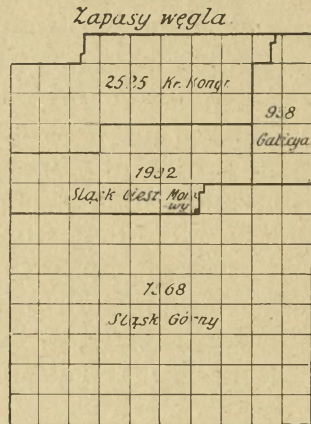 Zapasy węgla.
2525 Kr. Kongr.
938
Galicya
1932
Śląsk Ciesz. Mora
-wy
7368
Śląsk Górny